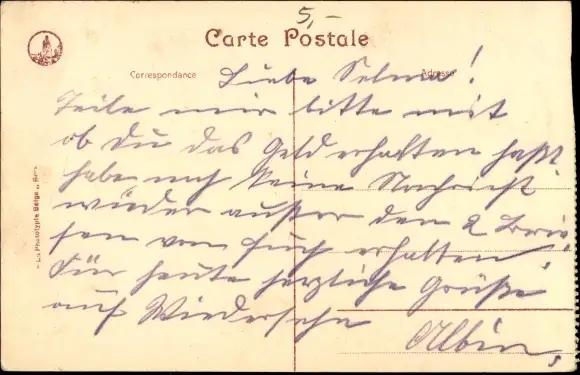 5,–
Carte Postale
Correspondance
Adresse
Liebe Selma!
Teile mir bitte mit
ob Du das Geld erhalten hast
habe noch keine Nachricht
wieder außer den 2 Brie-
fen von Euch erhalten.
Für heute herzliche Grüße
auf Wiedersehn
Albin,